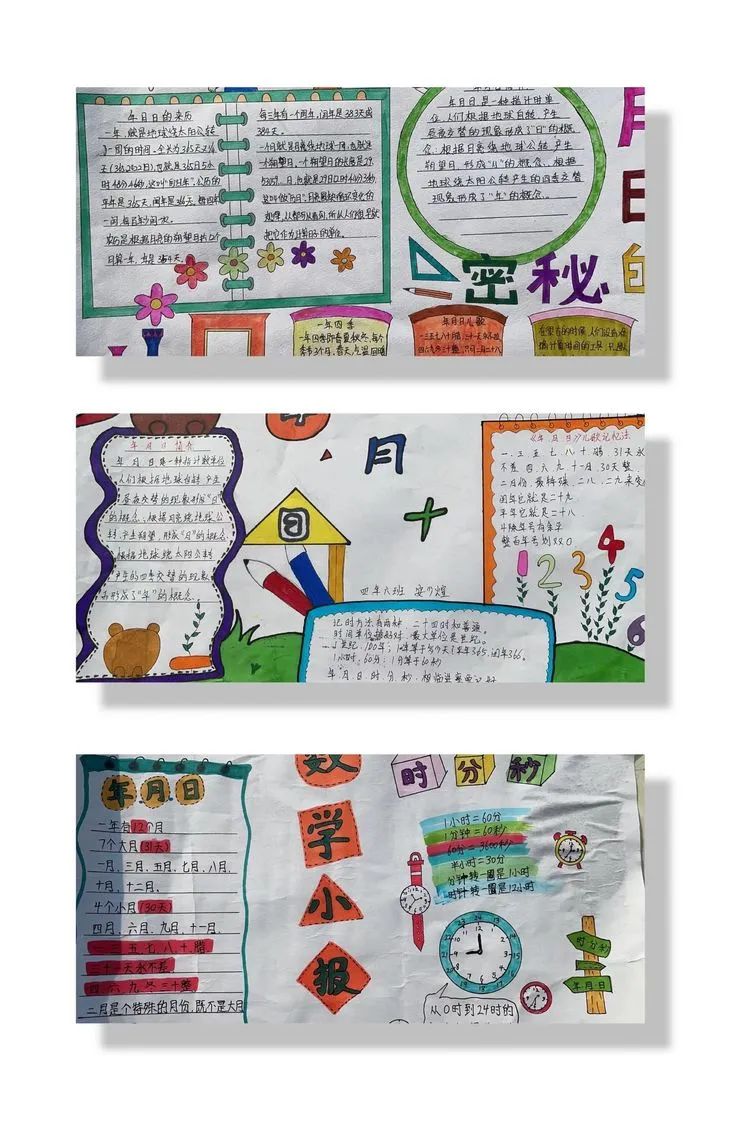 年月日的来历
一年,就是地球绕太阳公转
一周的时间。全天为365天又1/4
天(365.2422日),也就是365日5小
时48分46秒,这叫"回归年"。公历的
平年是365天,闰年是366天,每四年
一闰,每百年少闰一次。
农历是根据月亮的朔望日共12个
月算一年,共是354天。
每三年有一个闰年,闰年是383天或
384天。
一个月就是月亮绕地球一周,也就是
一个朔望日。一个朔望日的长度是29.
5305日,即就是29日12时44分3秒,
年月日是一种指计时单
位,人们根据地球自转,产生
昼夜交替的现象形成了"日"的概
念;根据月亮绕地球公转,产生
朔望月,形成"月"的概念。根据
地球绕太阳公转产生的四季交替
现象形成了"年"的概念。
月
日
的
密秘
一年四季
一年四季即春夏秋冬,每个
季节3个月,春天,气温回暖
年月日儿歌
一三五七八十腊,三十一天永不差
四六九冬三十整,只有二月二十八
在更古的时候,人们没有准
年月日简介
年月日是一种指计数单位
人们根据地球自转,产生
了昼夜交替的现象形成"日"
的概念,根据月亮绕地球公
转,产生朔望,形成"月"的概念
根据地球绕太阳公转
产生的四季交替的现象
而形成了"年"的概念
年
月
日
四年六班
《年月日》儿歌记忆法
一、三、五、七、八、十腊,31天永
不差,四、六、九、十一月,30天整,
二月份,最特殊,二八、二九来交
闰年它就是二十九
平年它就是二十八
4除年号有余平
整百年号划双0
1 2 3 4 5 6
记时方法有两种,二十四时和普通。
时间单位多好对,最大单位是世纪。
1世纪,100年;1年等于多少天?平年365,闰年366。
1小时:60分;1分等于60秒
年、月、日、时、分、秒,相临进率要记好
年月日
一年有12个月
7个大月(31天)
一月、三月、五月、七月、八月、
十月、十二月、
4个小月(30天)
四月、六月、九月、十一月、
一三五七八十腊
三十一天永不差
四六九冬三十整
二月是个特殊的月份,既不是大月
数
学
小
报
时 分 秒
1小时=60分
1分钟=60秒
60分=3600秒
半小时=30分
分针转一圈是1小时
时针转一圈是12小时
时分秒
年月日
从0时到24时的